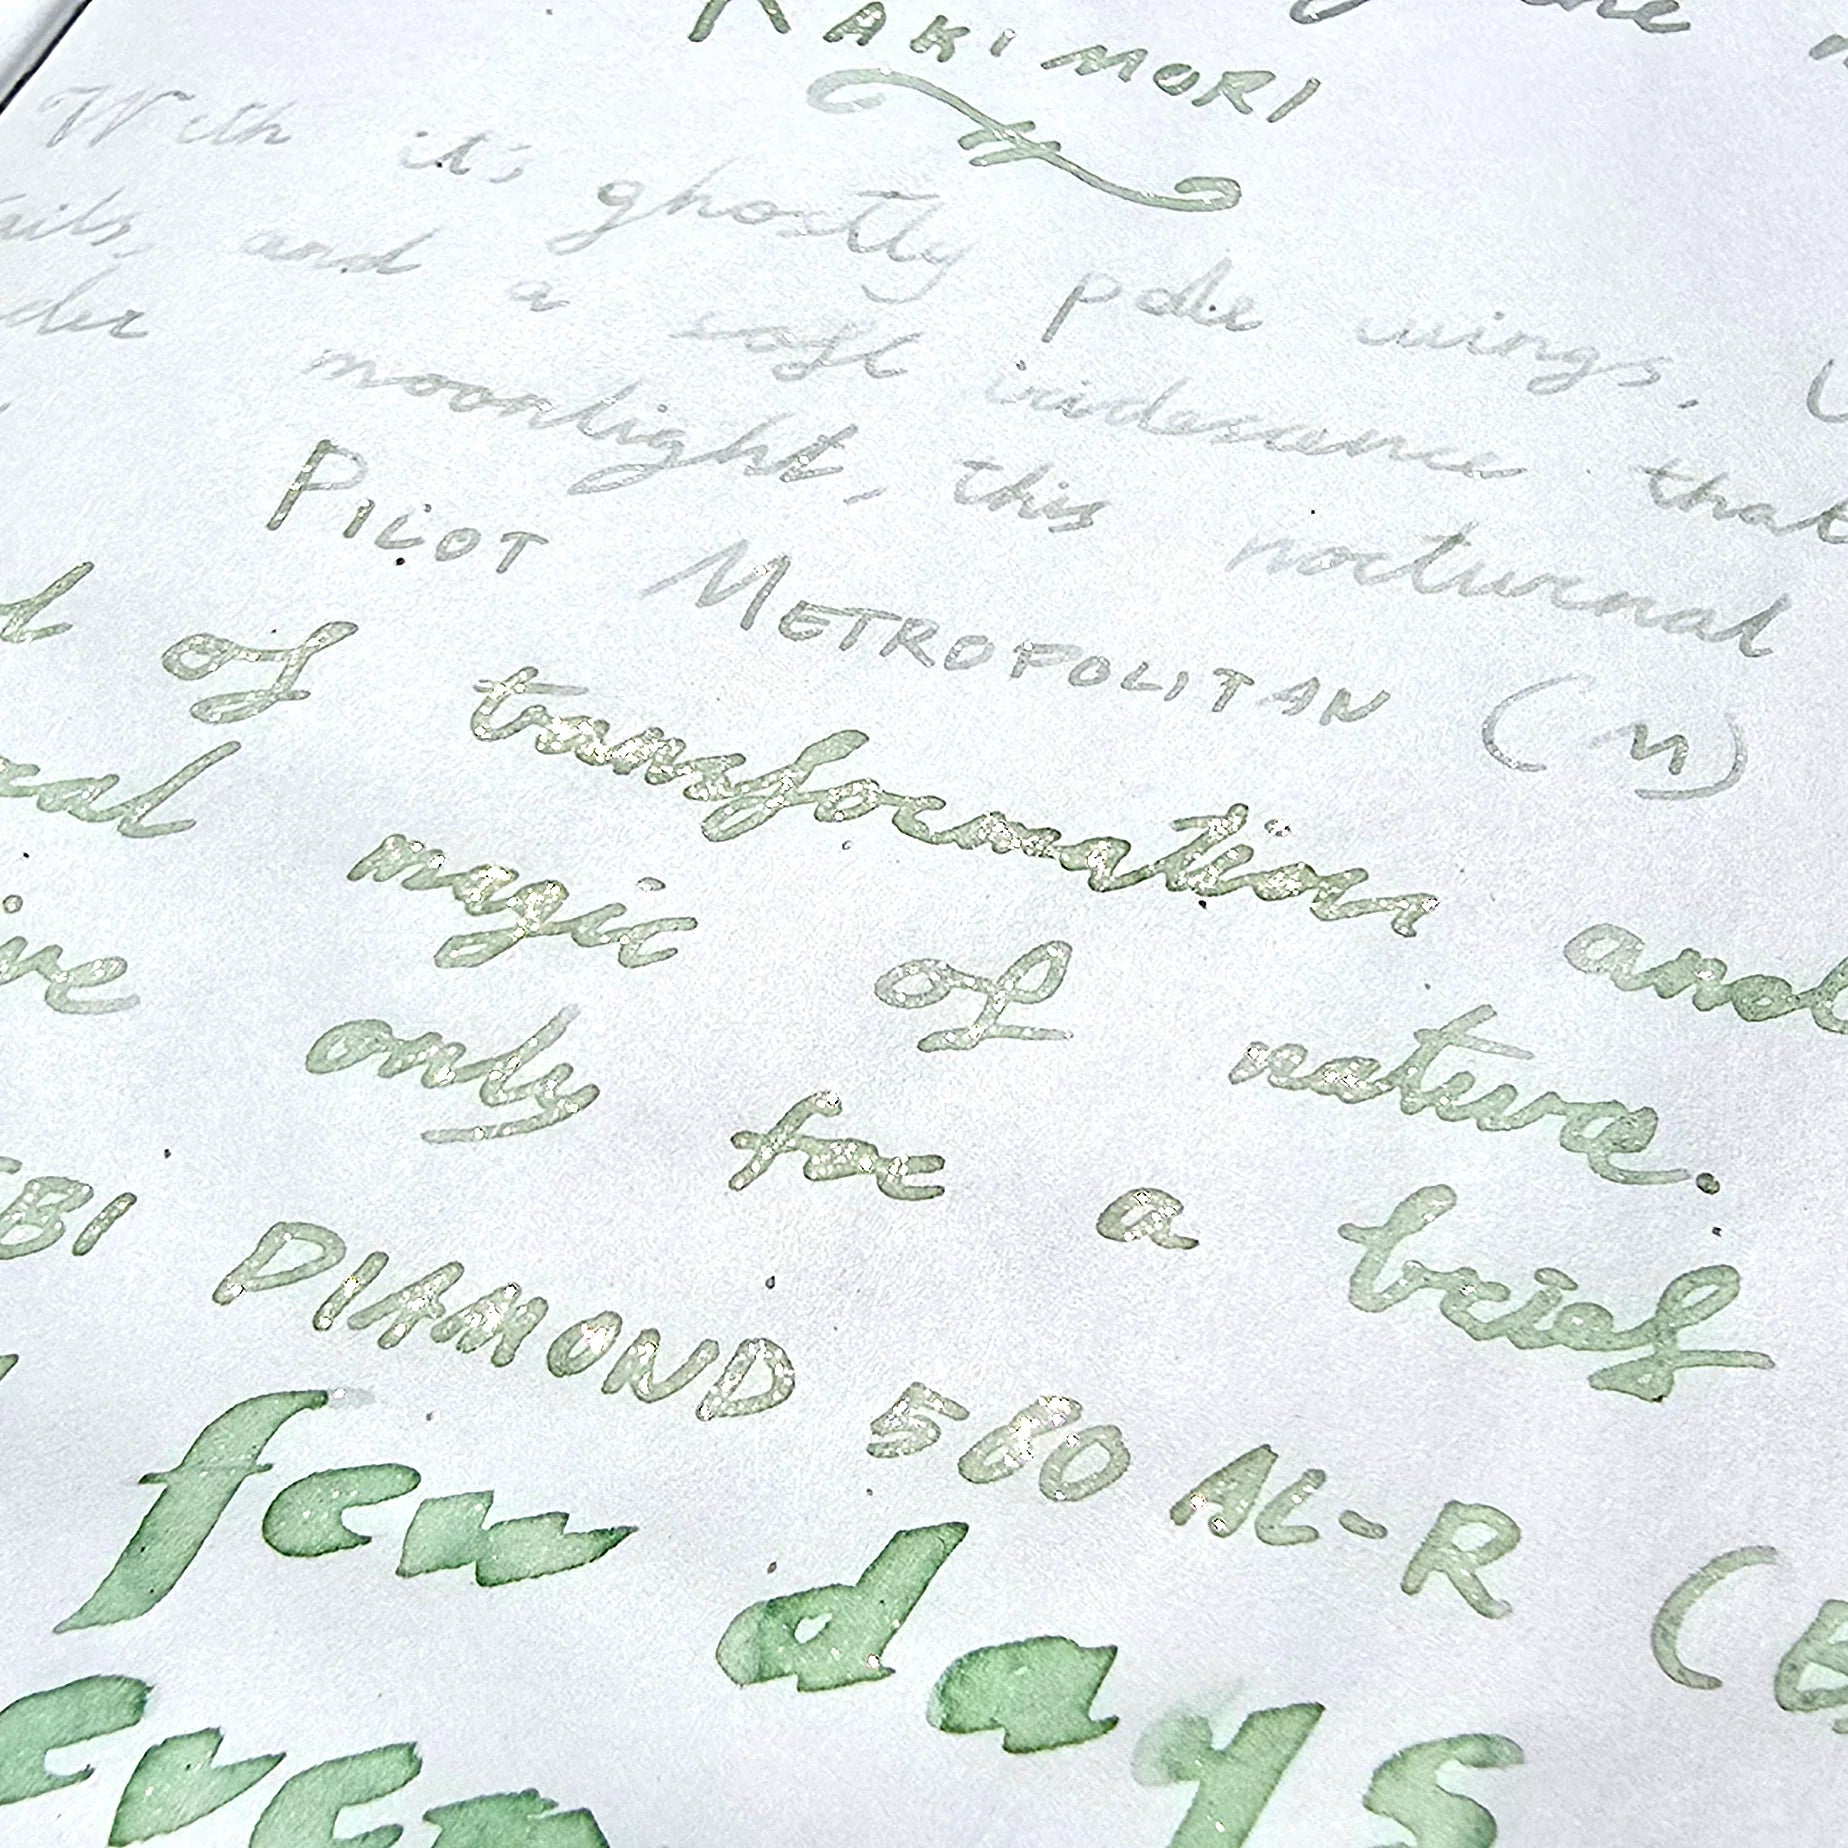 KAKIMORI
With it's ghostly pale wings,
tails, and a soft iridescence that
moonlight, this nocturnal
PILOT METROPOLITAN (M)
of transformation and
magic of nature.
only for a brief
DIAMOND 580 AL-R (B
few days